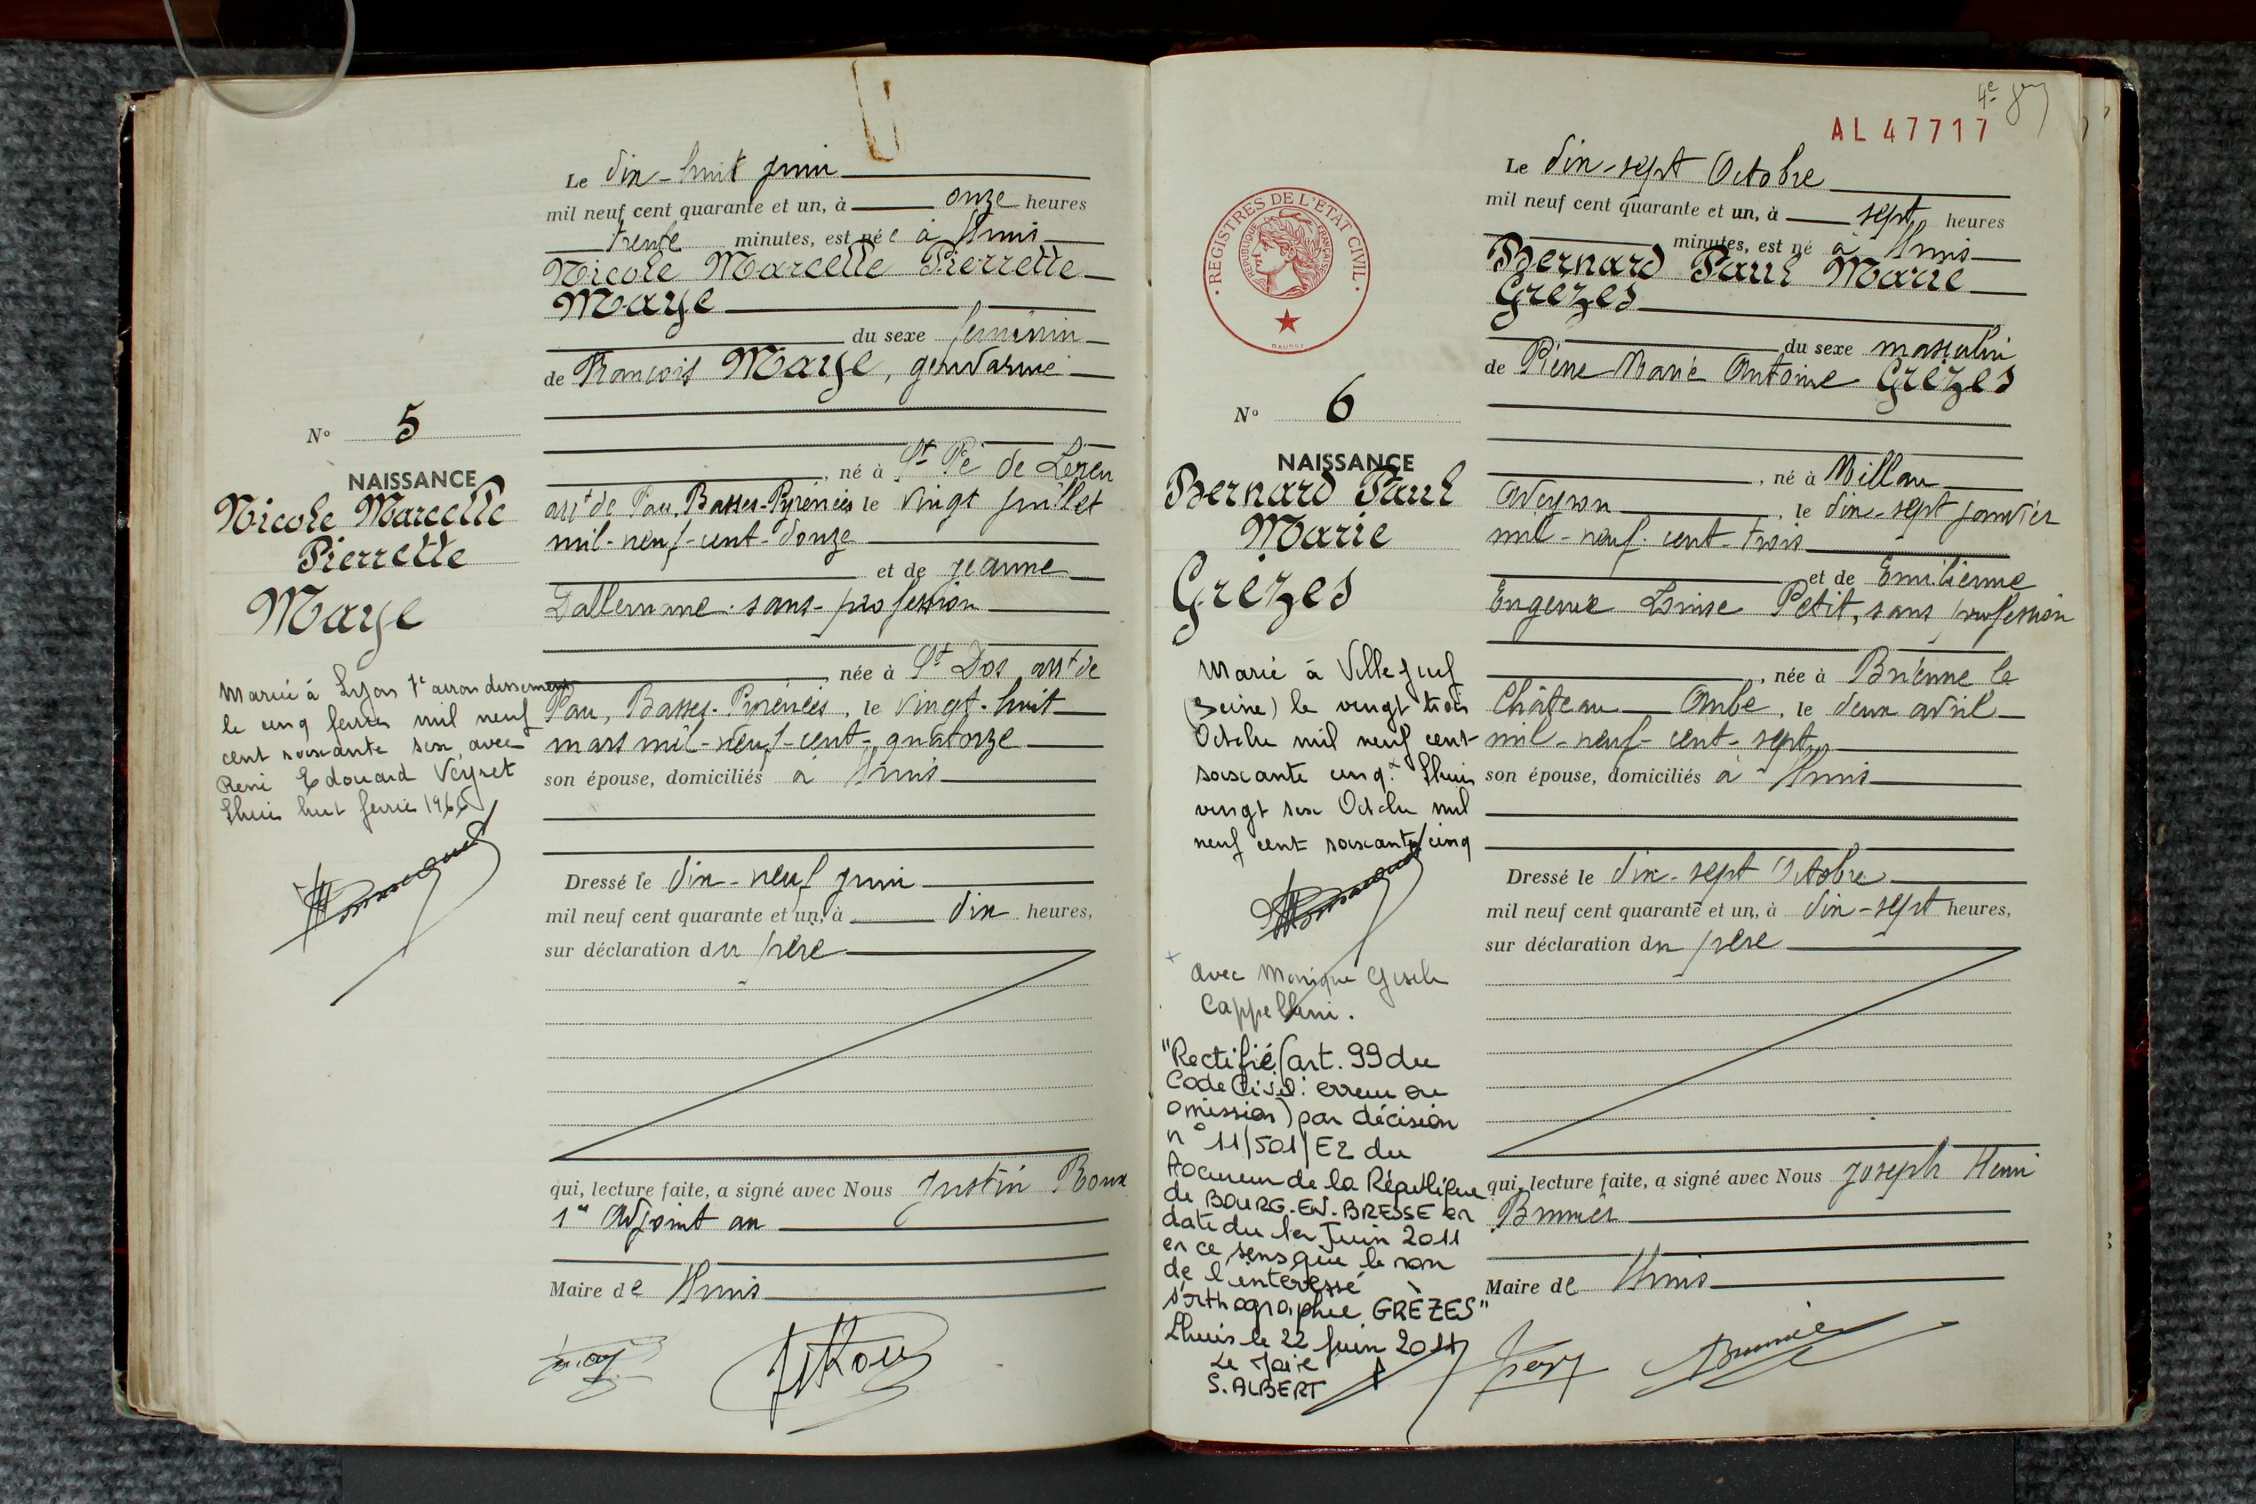 Le dix-huit juin
mil neuf cent quarante et un, à onze heures
trente minutes, est née à Lhuis
Nicole Marcelle Pierrette
Maye
du sexe féminin
de François Maye, gendarme
né à St Pé de Leren
arrt de Pau, Basses-Pyrénées le vingt juillet
mil-neuf-cent-douze
et de Jeanne
Dallemane. sans-profession
née à St Dos arrt de
Pau, Basses-Pyrénées, le vingt-huit
mars mil-neuf-cent-quatorze
son épouse, domiciliés à Lhuis
Dressé le dix-neuf juin
mil neuf cent quarante et un, à dix heures,
sur déclaration du père
qui, lecture faite, a signé avec Nous Justin Roux
1er Adjoint au
Maire de Lhuis
N° 5
NAISSANCE
Nicole Marcelle
Pierrette
Maye
Mariée à Lyon 1er arrondissement
le cinq février mil neuf
cent soixante six, avec
René Edouard Veyret
Lhuis huit février 1966
4e
AL 47717
Le dix-sept Octobre
mil neuf cent quarante et un, à sept heures
minutes, est né à Lhuis
Bernard Paul Marie
Grèzes
du sexe masculin
de Pierre Marie Antoine Grèzes
, né à Millau
Aveyron, le dix-sept janvier
mil-neuf-cent-trois
et de Emilienne
Eugenie Louise Petit, sans profession
, née à Brienne le
Château Aube, le deux avril
mil-neuf-cent-sept
son épouse, domiciliés à Lhuis
Dressé le dix-sept Octobre
mil neuf cent quarante et un, à dix-sept heures,
sur déclaration du père
qui, lecture faite, a signé avec Nous Joseph Henri
Brunier
Maire de Lhuis
REGISTRES DE L'ÉTAT CIVIL
RÉPUBLIQUE FRANÇAISE
N° 6
NAISSANCE
Bernard Paul
Marie
Grèzes
Marié à Villejuif
(Seine) le vingt trois
Octobre mil neuf cent
soixante cinq. x Lhuis
vingt six Octobre mil
neuf cent soixante/cinq
x avec Monique Gisèle
Cappellani.
"Rectifié (art. 99 du
Code Civil: erreur ou
omission) par décision
n° 11/501/E2 du
Procureur de la République
de BOURG-EN-BRESSE en
date du 1er Juin 2011
en ce sens que le nom
de l'interessé
s'orthographie GRÈZES"
Lhuis le 22 juin 2011
Le Maire
S. ALBERT